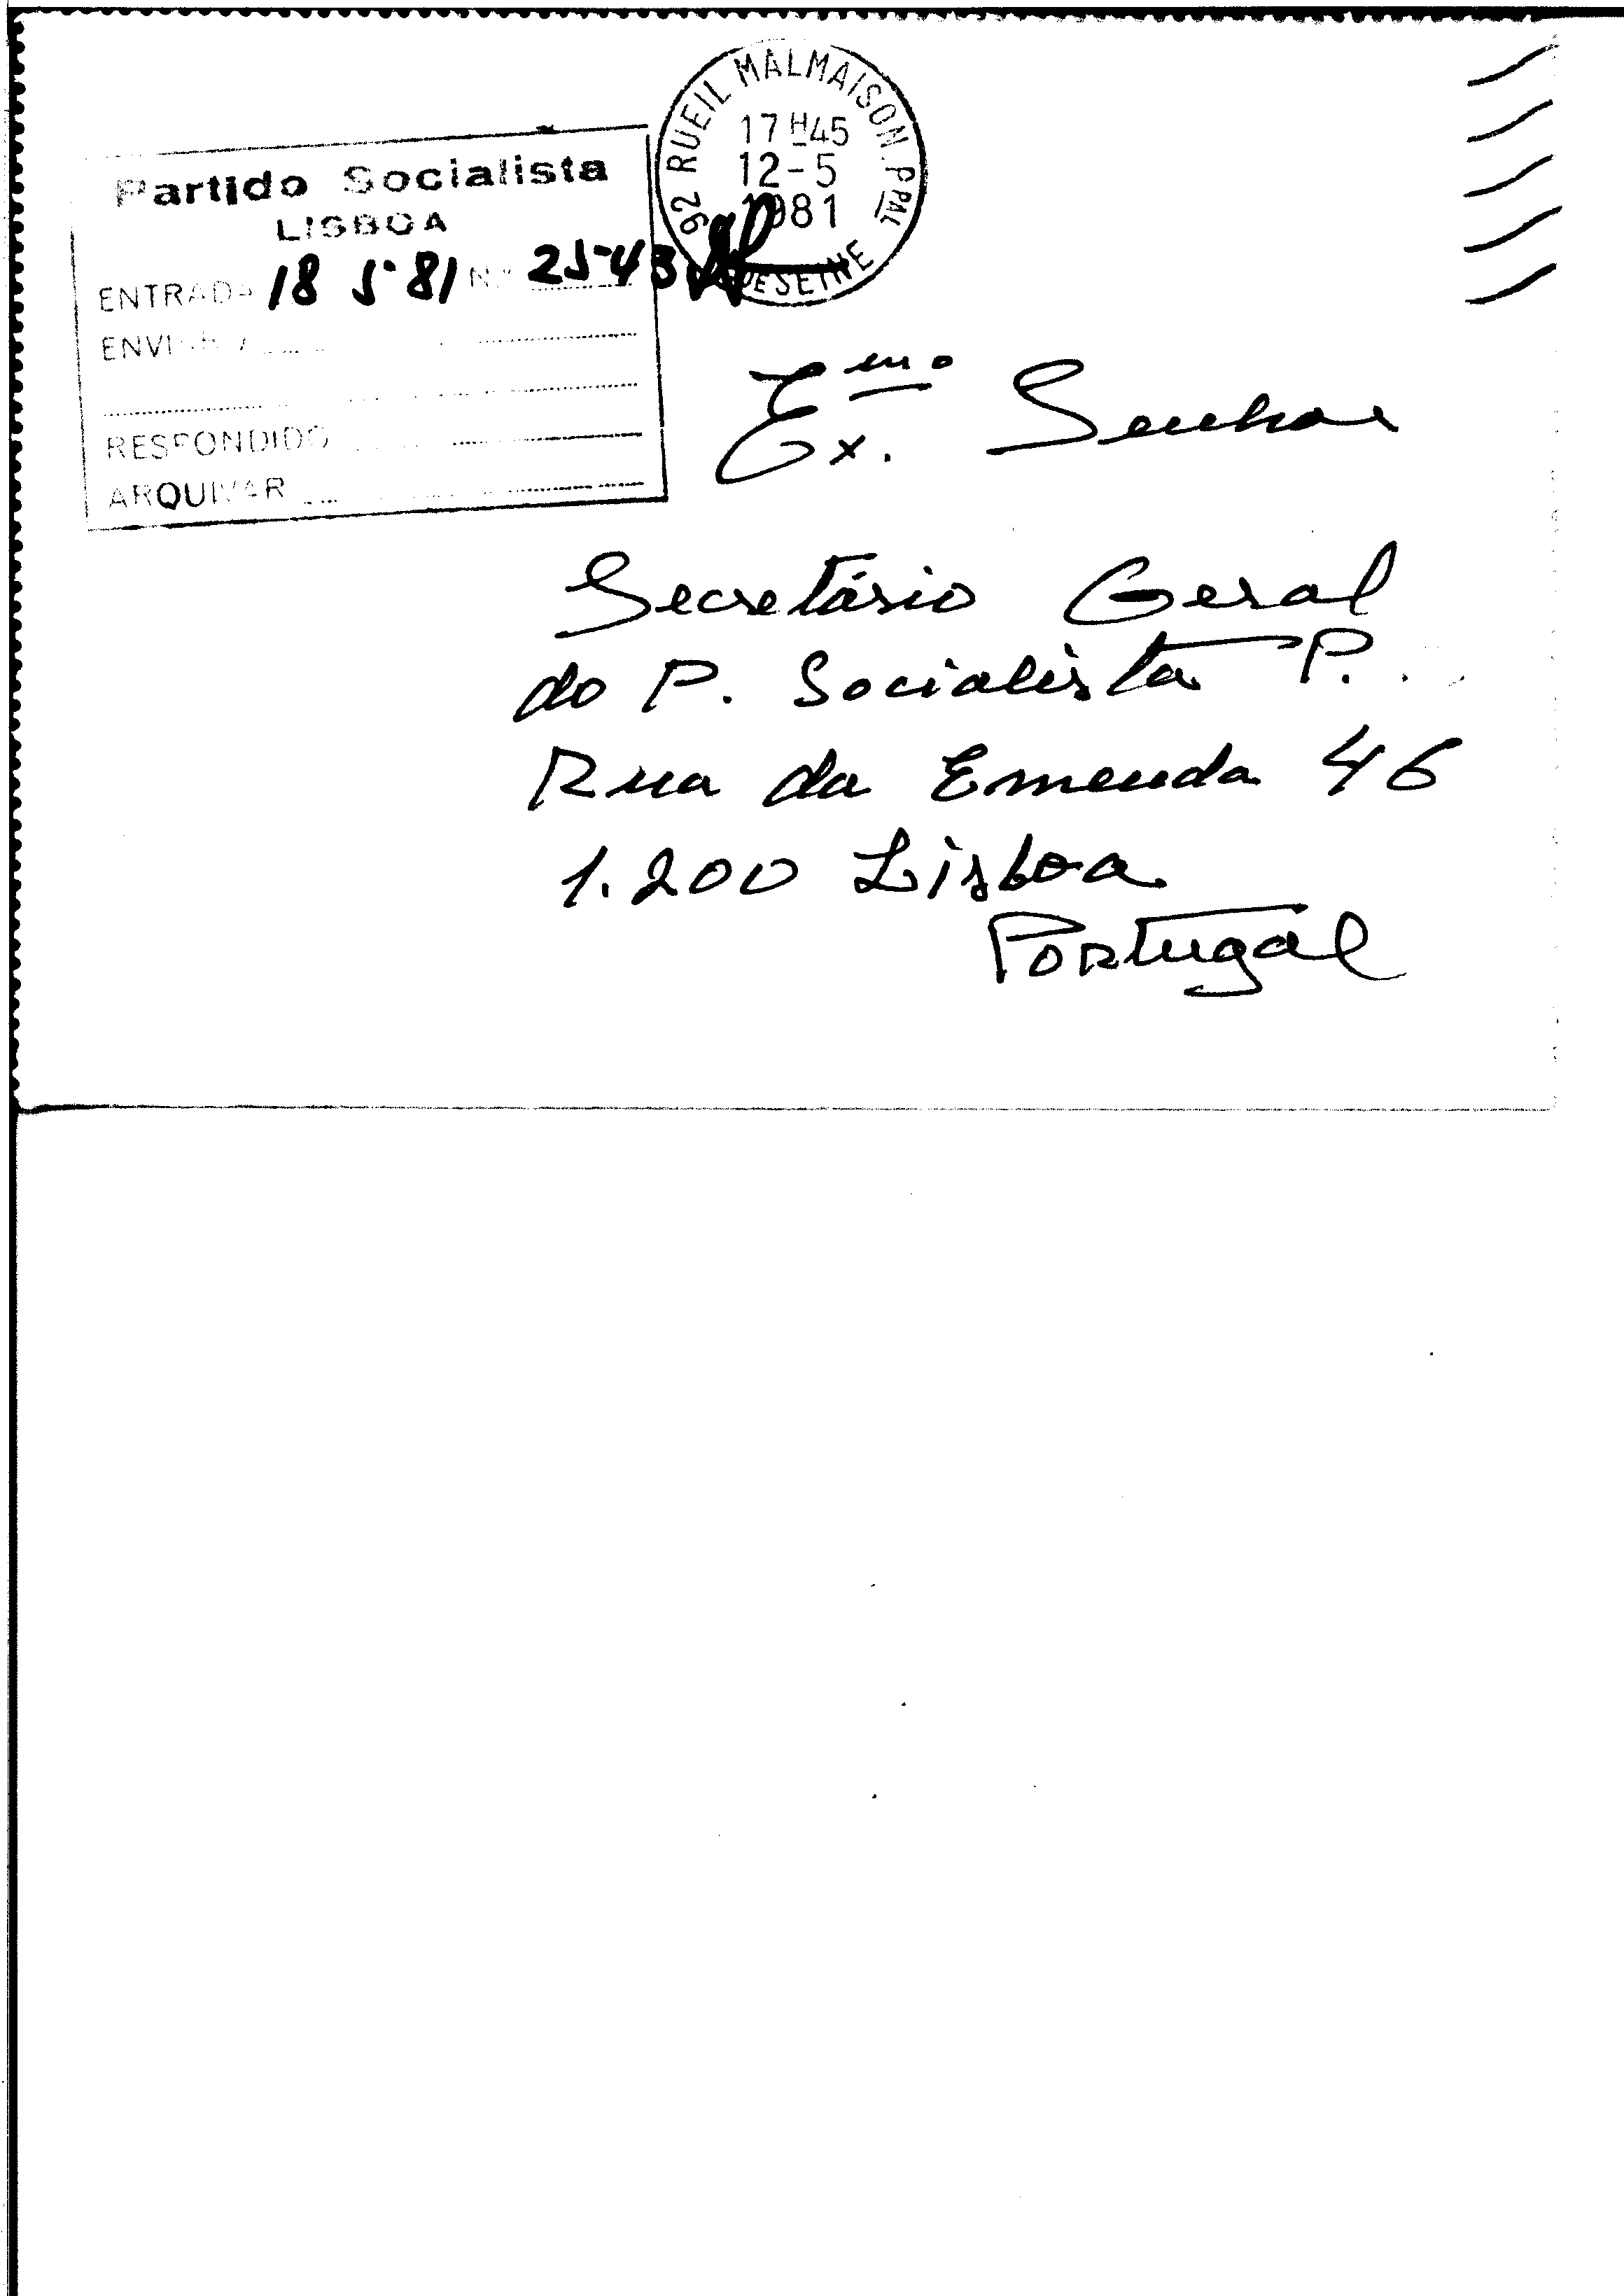 Partido Socialista
LISBOA
ENTRADA 18 5-81 N.º 2543
ENVIAR A
RESPONDIDO
ARQUIVAR
92 RUEIL MALMAISON PPAL
17H45
12-5
1981
DE SEINE
Exmo. Senhor
Secretário Geral
do P. Socialista P.
Rua da Emenda 46
1.200 Lisboa
Portugal